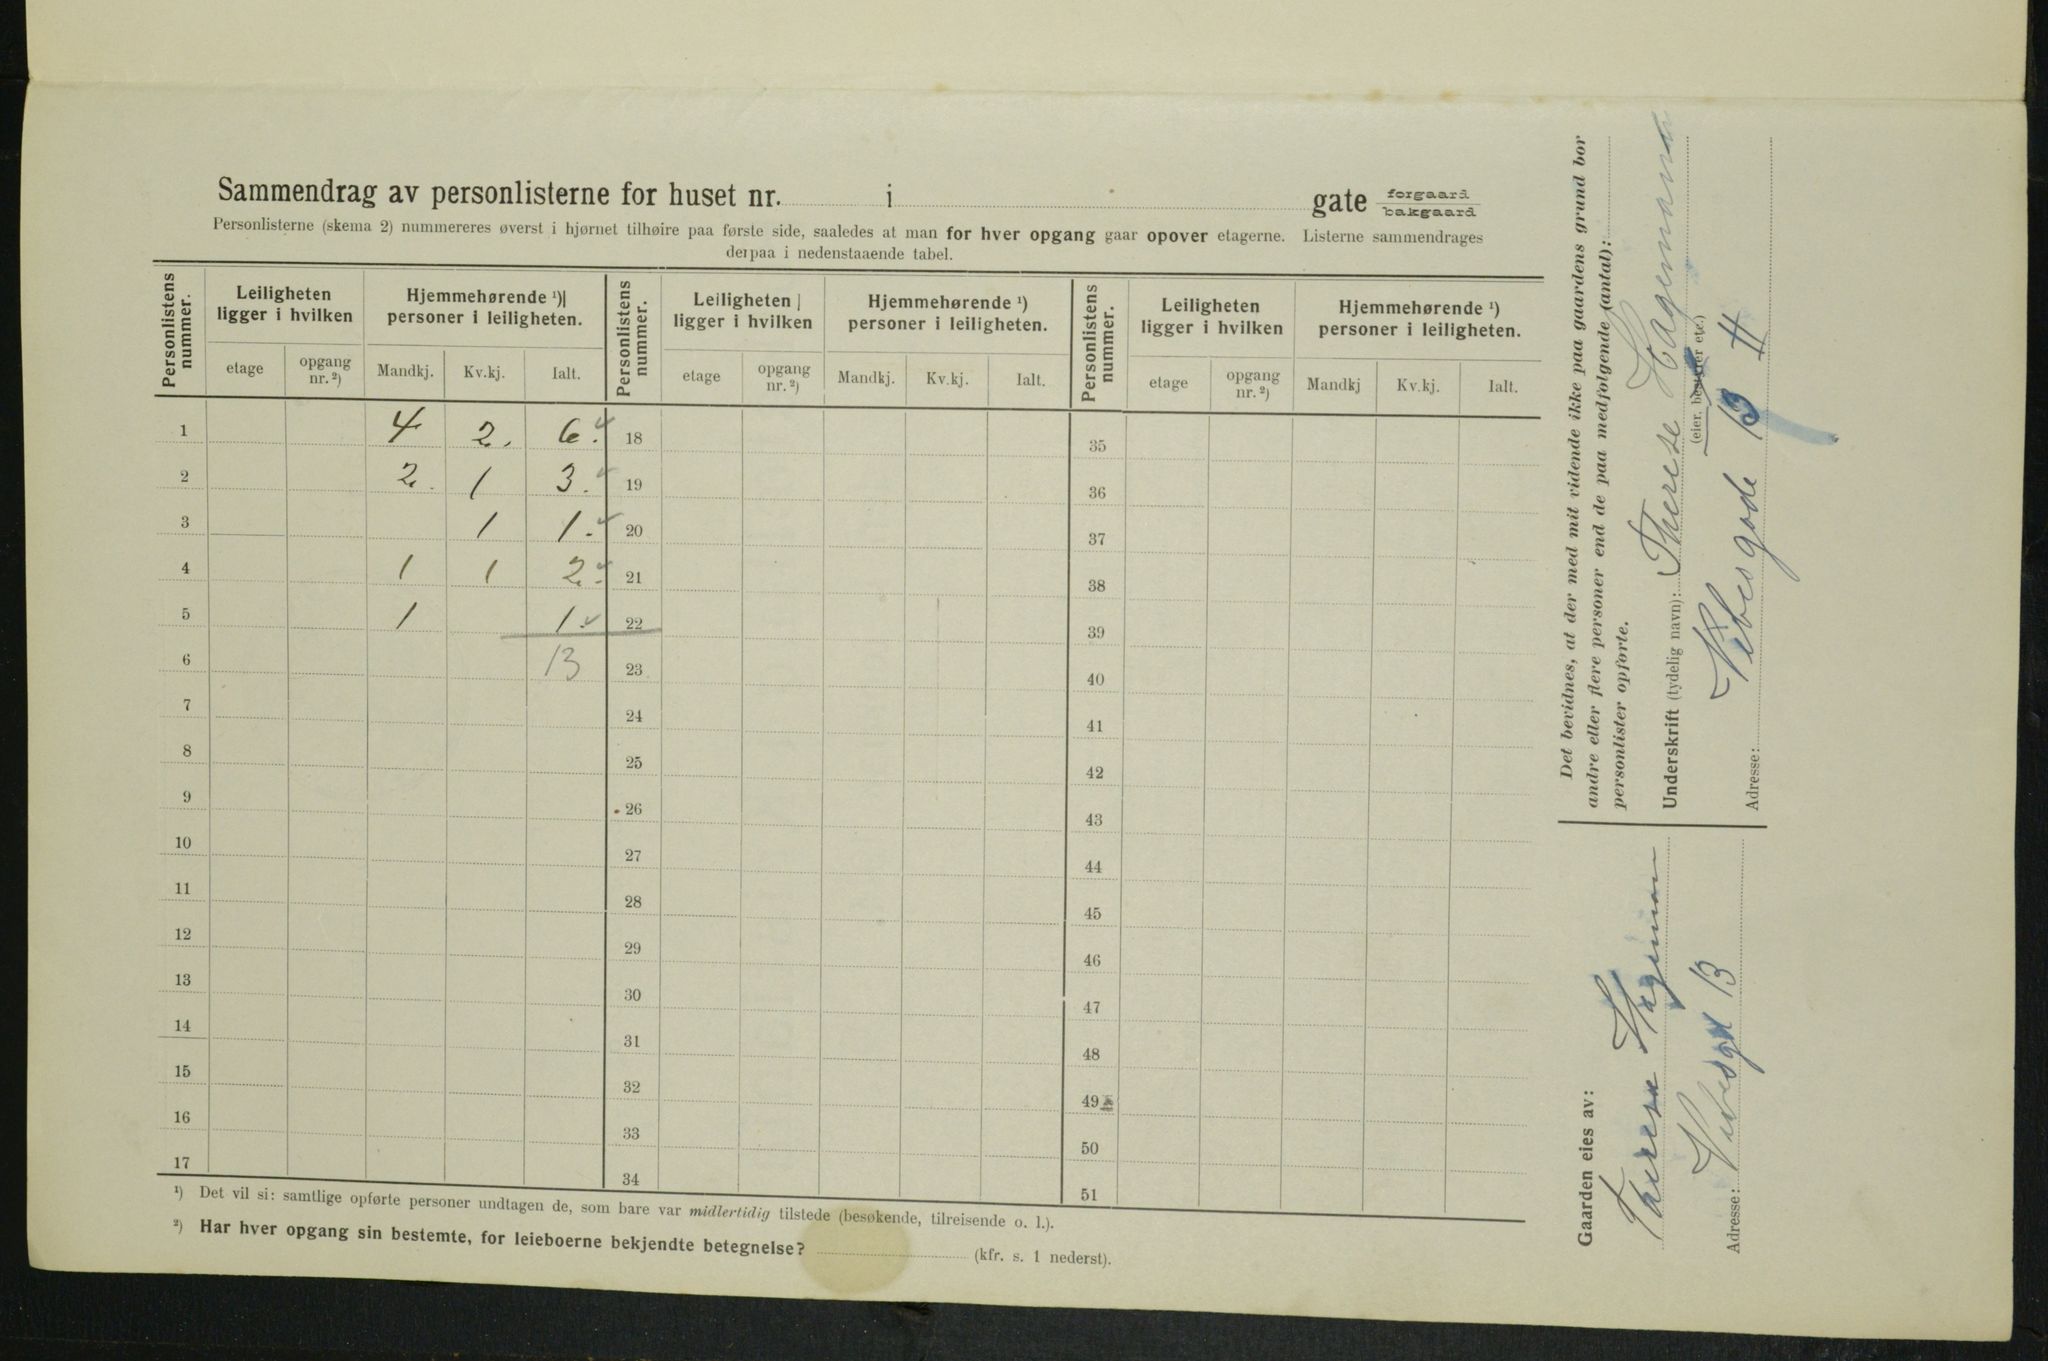 Sammendrag av personlisterne for huset nr. i gate forgaard
bakgaard
Personlisterne (skema 2) nummereres øverst i hjørnet tilhøire paa første side, saaledes at man for hver opgang gaar opover etagerne. Listerne sammendrages
derpaa i nedenstaaende tabel.
Personlistens nummer. Leiligheten ligger i hvilken Hjemmehørende ¹) personer i leiligheten. Personlistens nummer. Leiligheten ligger i hvilken Hjemmehørende ¹) personer i leiligheten. Personlistens nummer. Leiligheten ligger i hvilken Hjemmehørende ¹) personer i leiligheten.
etage opgang nr. ²) Mandkj. Kv.kj. Ialt. etage opgang nr. ²) Mandkj. Kv.kj. Ialt. etage opgang nr. ²) Mandkj Kv.kj. Ialt.
1 4 2. 6. 18 35
2 2. 1 3. 19 36
3 1 1. 20 37
4 1 1 2. 21 38
5 1 1. 22 39
6 13 23 40
7 24 41
8 25 42
9 26 43
10 27 44
11 28 45
12 29 46
13 30 47
14 31 48
15 32 49
16 33 50
17 34 51
¹) Det vil si: samtlige opførte personer undtagen de, som bare var midlertidig tilstede (besøkende, tilreisende o. l.).
²) Har hver opgang sin bestemte, for leieboerne bekjendte betegnelse? (kfr. s. 1 nederst).
Det bevidnes, at der med mit vidende ikke paa gaardens grund bor
andre eller flere personer end de paa medfølgende (antal):
personlister opførte.
Underskrift (tydelig navn): Therese Hagemann
(eier, bestyrer etc.)
Vibesgade 13 II
Adresse:
Gaarden eies av:
Therese Hagemann
Vibesgd 13
Adresse: